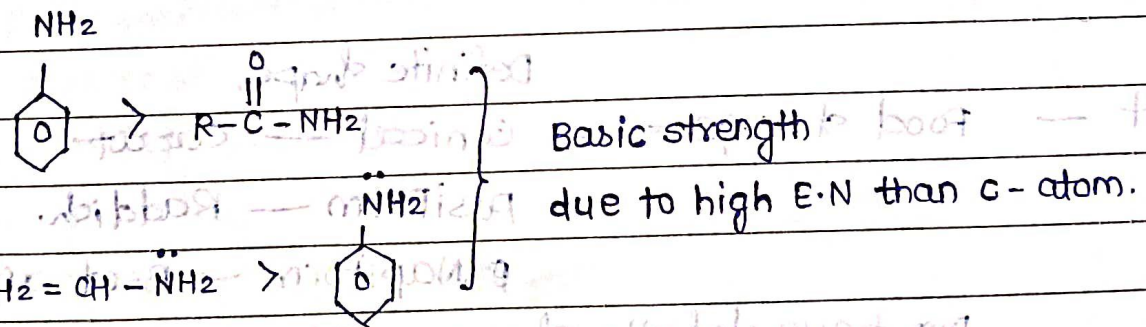 NH2
O
> R-C-NH2
Basic strength
N̈H2
due to high E.N than c-atom.
H2 = CH - N̈H2 >